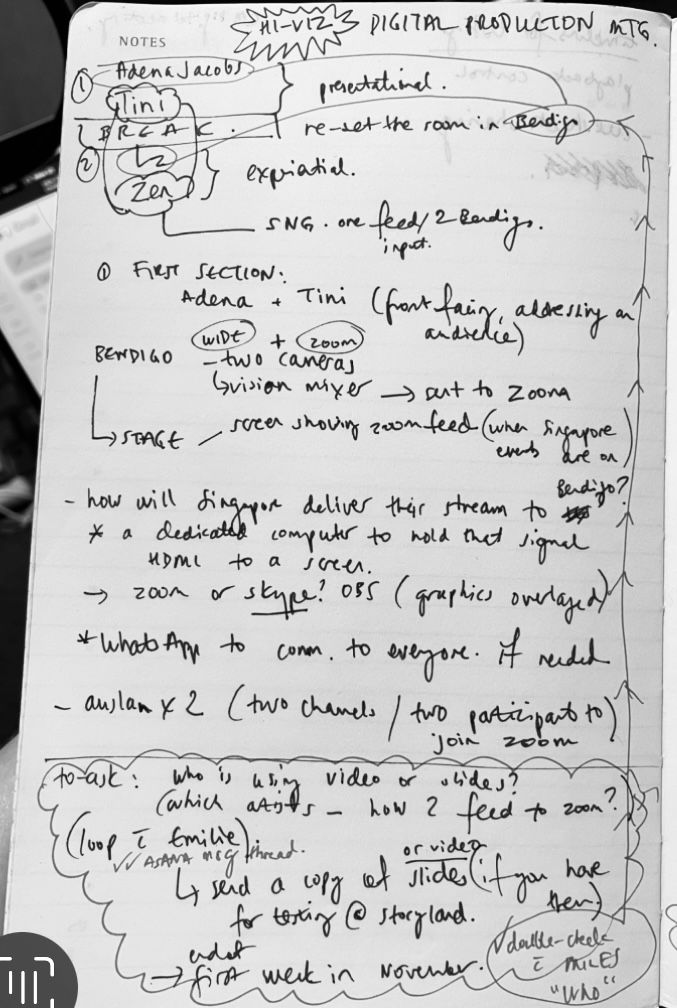 NOTES
HI-VIZ DIGITAL PRODUCTION MTG.
① Adena Jacobs
Tini } presentational.
BREAK. re-set the room in Bendigo
②
Zen } expriatial.
SNG. one feed/2 Bendigo.
input.
① FIRST SECTION:
Adena + Tini (front facing, addressing an
audience)
WIDE + ZOOM
BENDIGO - two cameras
↳ vision mixer → sent to Zoom
↳ STAGE / screen showing zoom feed (when Singapore
events are on)
- how will Singapore deliver their stream to Bendigo?
* a dedicated computer to hold that signal
HDMI to a screen.
→ zoom or skype? OBS (graphics overlayed)
* WhatsApp to comm. to everyone. if needed
- auslan x 2 (two channels / two participants to
join zoom
to-ask: who is using video or slides?
(which artists - how 2 feed to zoom?)
(loop c̄ Emilie)
✓✓ ASANA MSG thread.
or video
↳ send a copy of slides (if you have
them)
for testing @ storyland.
→ first week in November.
✓ double-check
c̄ MILES
"Who"